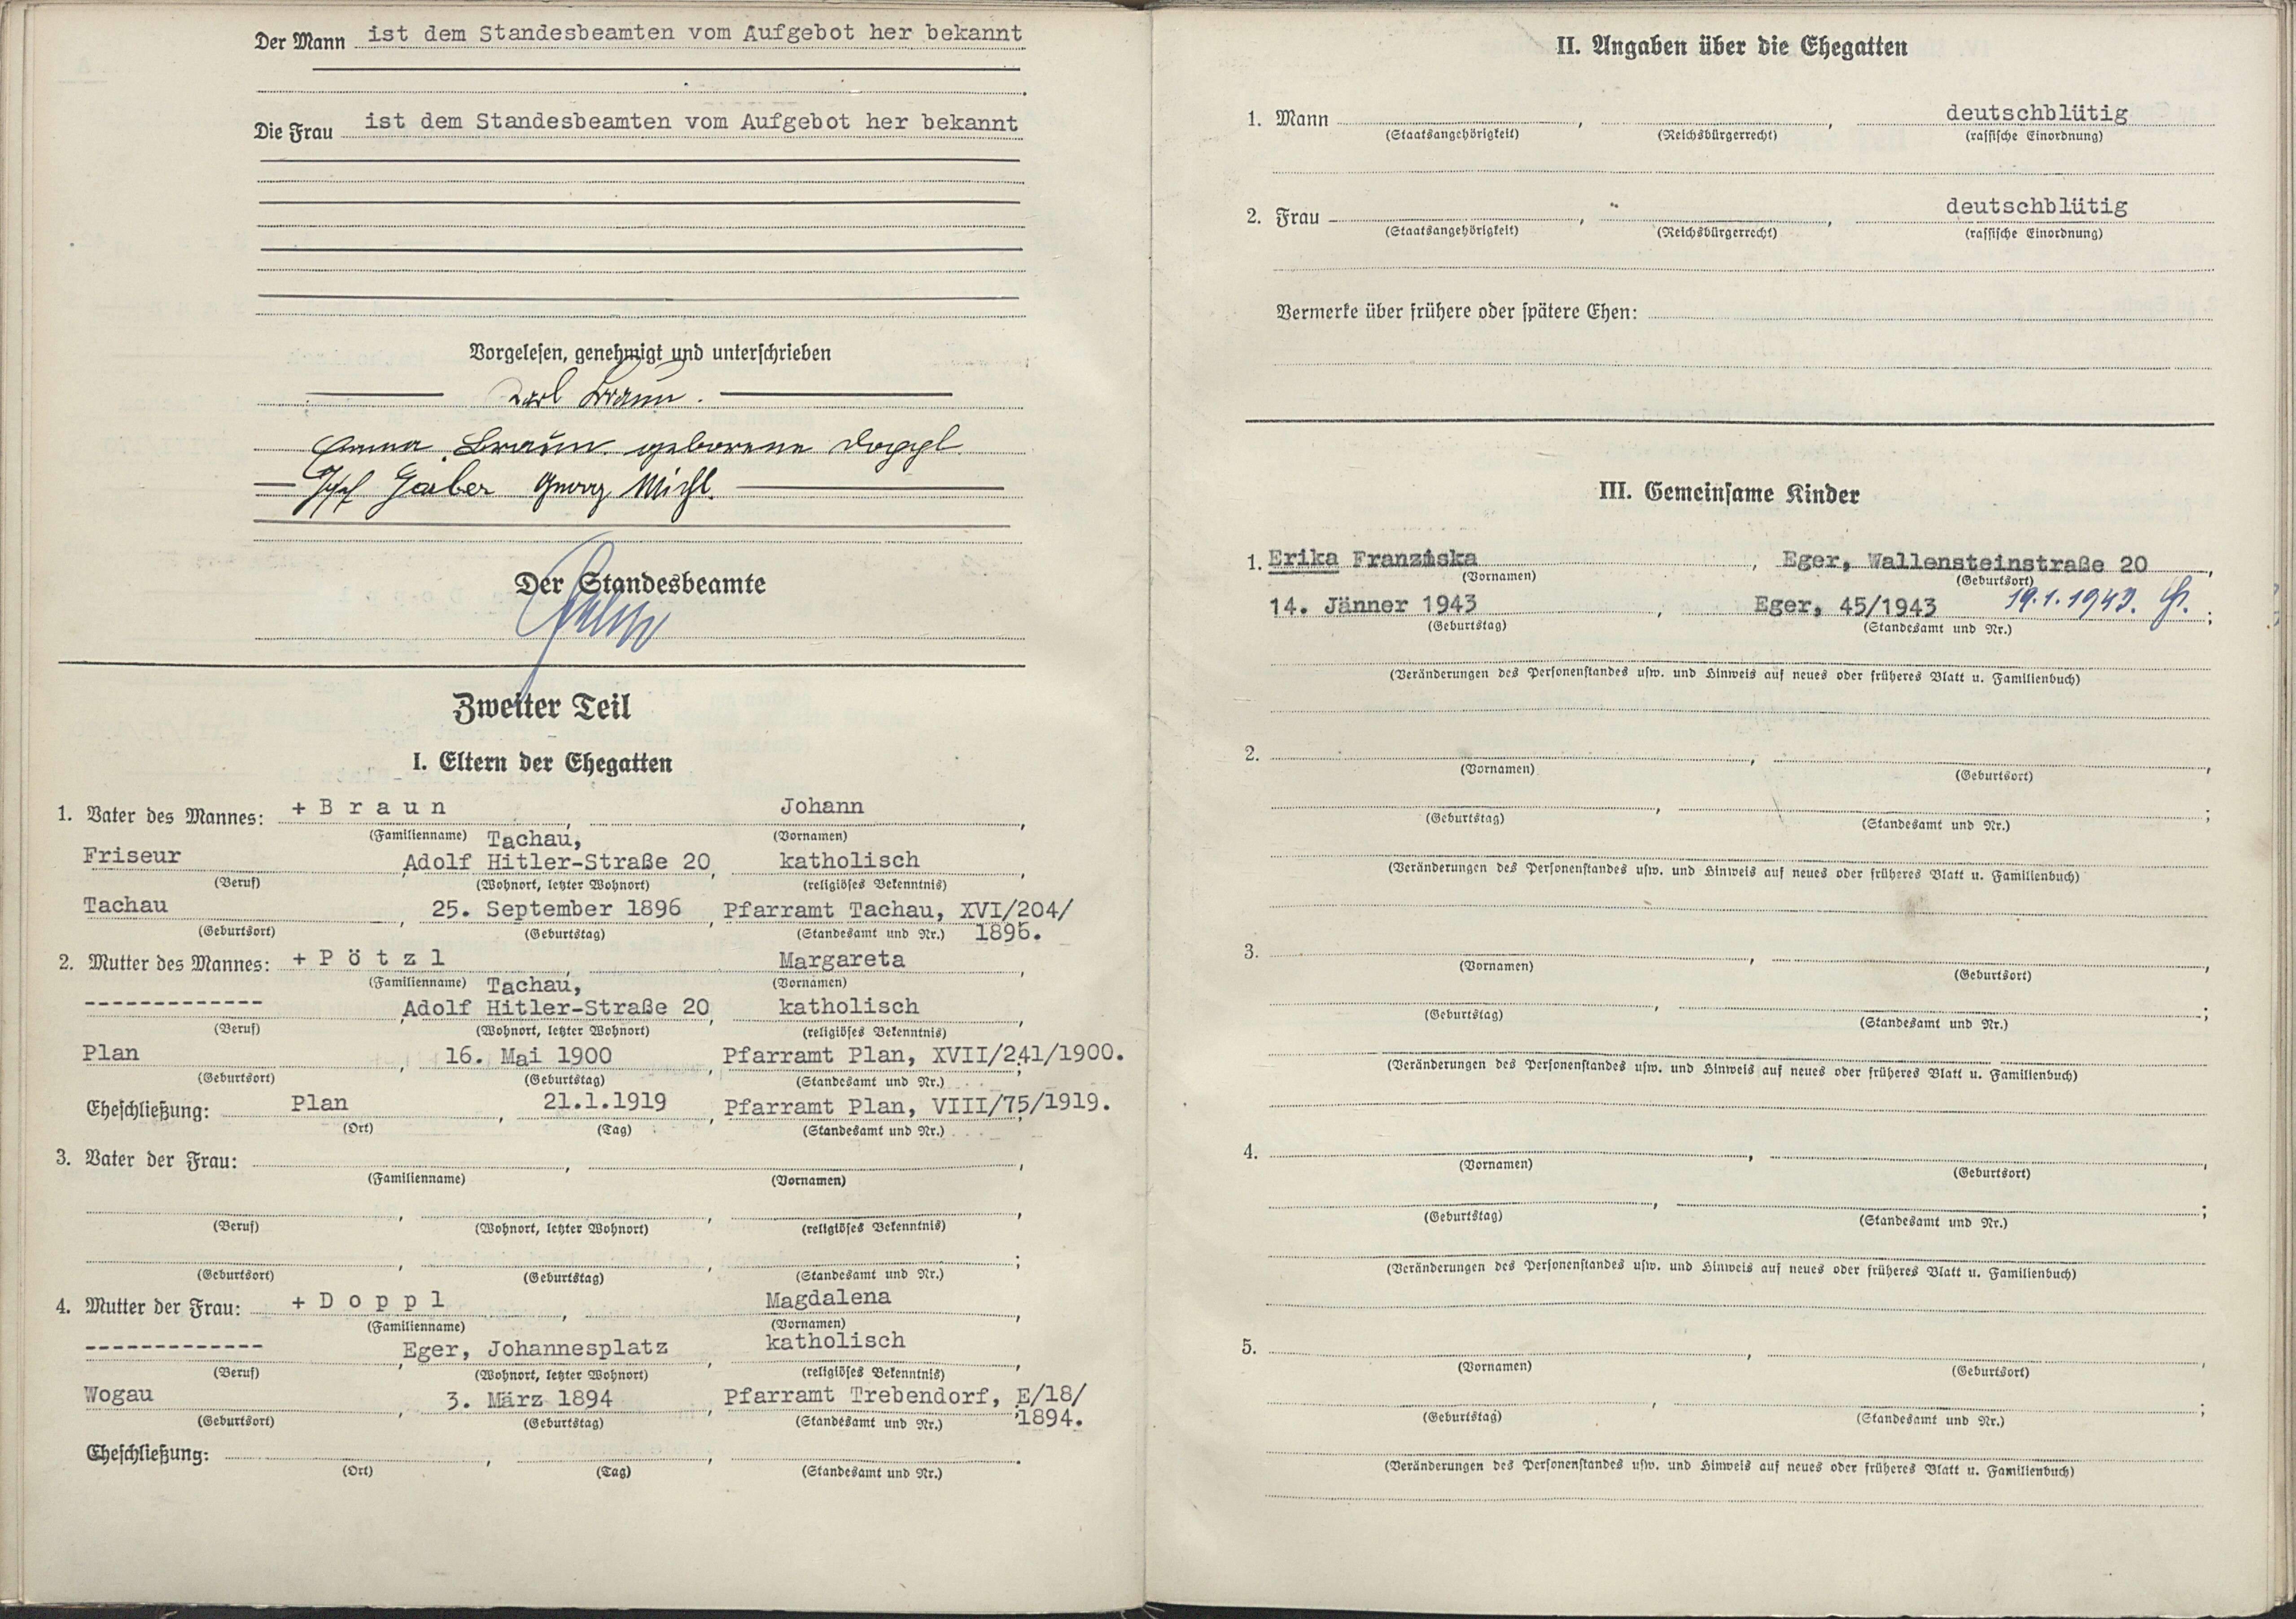 Der Mann ist dem Standesbeamten vom Aufgebot her bekannt
Die Frau ist dem Standesbeamten vom Aufgebot her bekannt
Vorgelesen, genehmigt und unterschrieben
Karl Braun.
Anna Braun geborene Doppl
Josef Gaber Georg Michl.
Der Standesbeamte
Zweiter Teil
I. Eltern der Ehegatten
1. Vater des Mannes: + B r a u n , Johann ,
(Familienname) Tachau, (Vornamen)
Friseur , Adolf Hitler-Straße 20, katholisch ,
(Beruf) (Wohnort, letzter Wohnort) (religiöses Bekenntnis)
Tachau , 25. September 1896 , Pfarramt Tachau, XVI/204/
(Geburtsort) (Geburtstag) (Standesamt und Nr.) 1896.
2. Mutter des Mannes: + P ö t z l , Margareta ,
(Familienname) Tachau, (Vornamen)
------------- , Adolf Hitler-Straße 20, katholisch ,
(Beruf) (Wohnort, letzter Wohnort) (religiöses Bekenntnis)
Plan , 16. Mai 1900 , Pfarramt Plan, XVII/241/1900.
(Geburtsort) (Geburtstag) (Standesamt und Nr.)
Eheschließung: Plan , 21.1.1919 , Pfarramt Plan, VIII/75/1919.
(Ort) (Tag) (Standesamt und Nr.)
3. Vater der Frau: , ,
(Familienname) (Vornamen)
, , ,
(Beruf) (Wohnort, letzter Wohnort) (religiöses Bekenntnis)
, , ;
(Geburtsort) (Geburtstag) (Standesamt und Nr.)
4. Mutter der Frau: + D o p p l , Magdalena ,
(Familienname) (Vornamen)
------------- , Eger, Johannesplatz , katholisch ,
(Beruf) (Wohnort, letzter Wohnort) (religiöses Bekenntnis)
Wogau , 3. März 1894 , Pfarramt Trebendorf, E/18/
(Geburtsort) (Geburtstag) (Standesamt und Nr.) 1894.
Eheschließung: , , .
(Ort) (Tag) (Standesamt und Nr.)
II. Angaben über die Ehegatten
1. Mann , , deutschblütig
(Staatsangehörigkeit) (Reichsbürgerrecht) (rassische Einordnung)
2. Frau , , deutschblütig
(Staatsangehörigkeit) (Reichsbürgerrecht) (rassische Einordnung)
Vermerke über frühere oder spätere Ehen:
III. Gemeinsame Kinder
1. Erika Franziska , Eger, Wallensteinstraße 20 ,
(Vornamen) (Geburtsort)
14. Jänner 1943 , Eger, 45/1943 19.1.1943. ;
(Geburtstag) (Standesamt und Nr.)
(Veränderungen des Personenstandes usw. und Hinweis auf neues oder früheres Blatt u. Familienbuch)
2. , ,
(Vornamen) (Geburtsort)
, ;
(Geburtstag) (Standesamt und Nr.)
(Veränderungen des Personenstandes usw. und Hinweis auf neues oder früheres Blatt u. Familienbuch)
3. , ,
(Vornamen) (Geburtsort)
, ;
(Geburtstag) (Standesamt und Nr.)
(Veränderungen des Personenstandes usw. und Hinweis auf neues oder früheres Blatt u. Familienbuch)
4. , ,
(Vornamen) (Geburtsort)
, ;
(Geburtstag) (Standesamt und Nr.)
(Veränderungen des Personenstandes usw. und Hinweis auf neues oder früheres Blatt u. Familienbuch)
5. , ,
(Vornamen) (Geburtsort)
, ;
(Geburtstag) (Standesamt und Nr.)
(Veränderungen des Personenstandes usw. und Hinweis auf neues oder früheres Blatt u. Familienbuch)